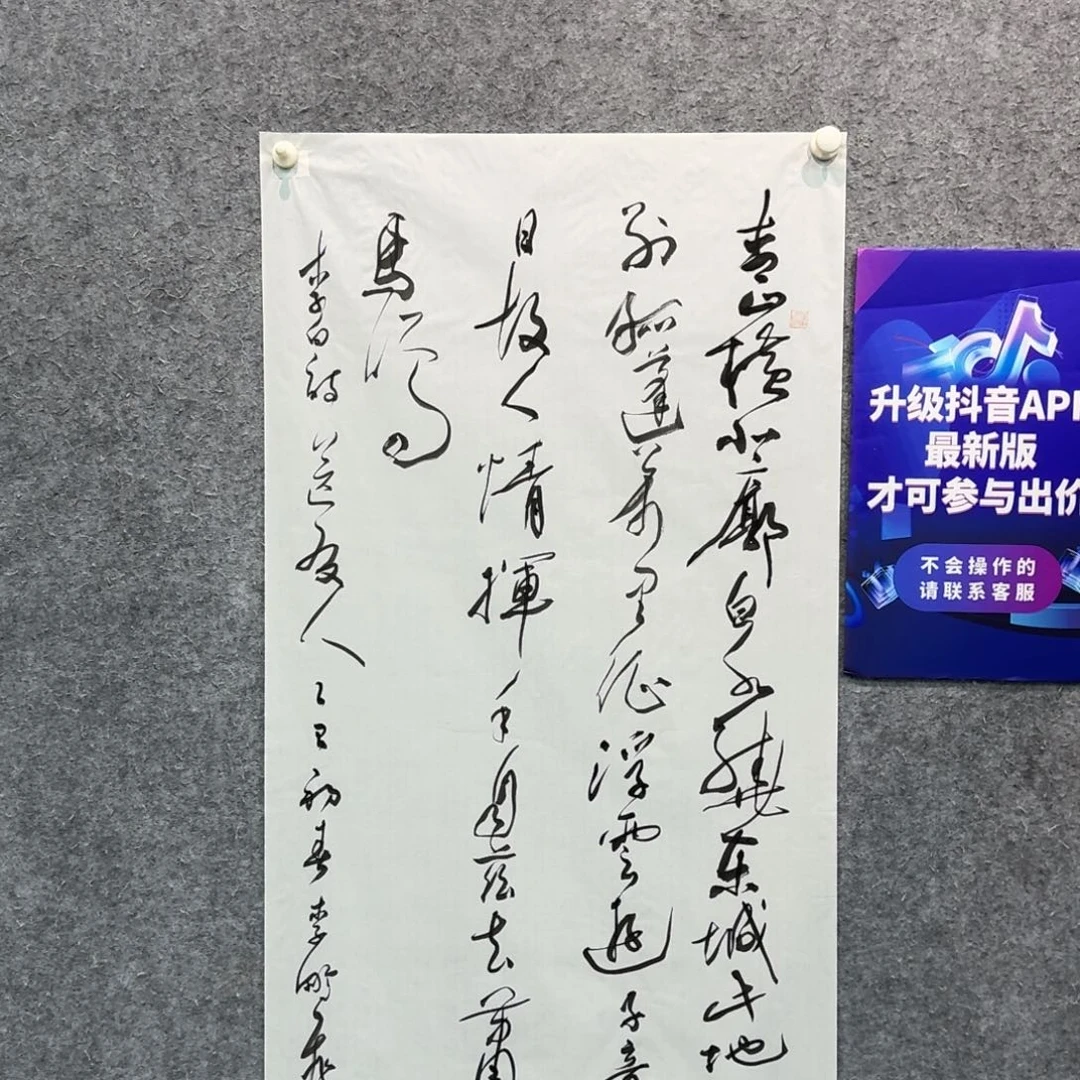 青山橫北廓白水繞東城此地
別孤蓬萬里征浮雲遊子意
日故人情揮手自茲去蕭
馬鳴
李白詩 送友人 乙巳初春 李
升级抖音APP
最新版
才可参与出价
不会操作的
请联系客服